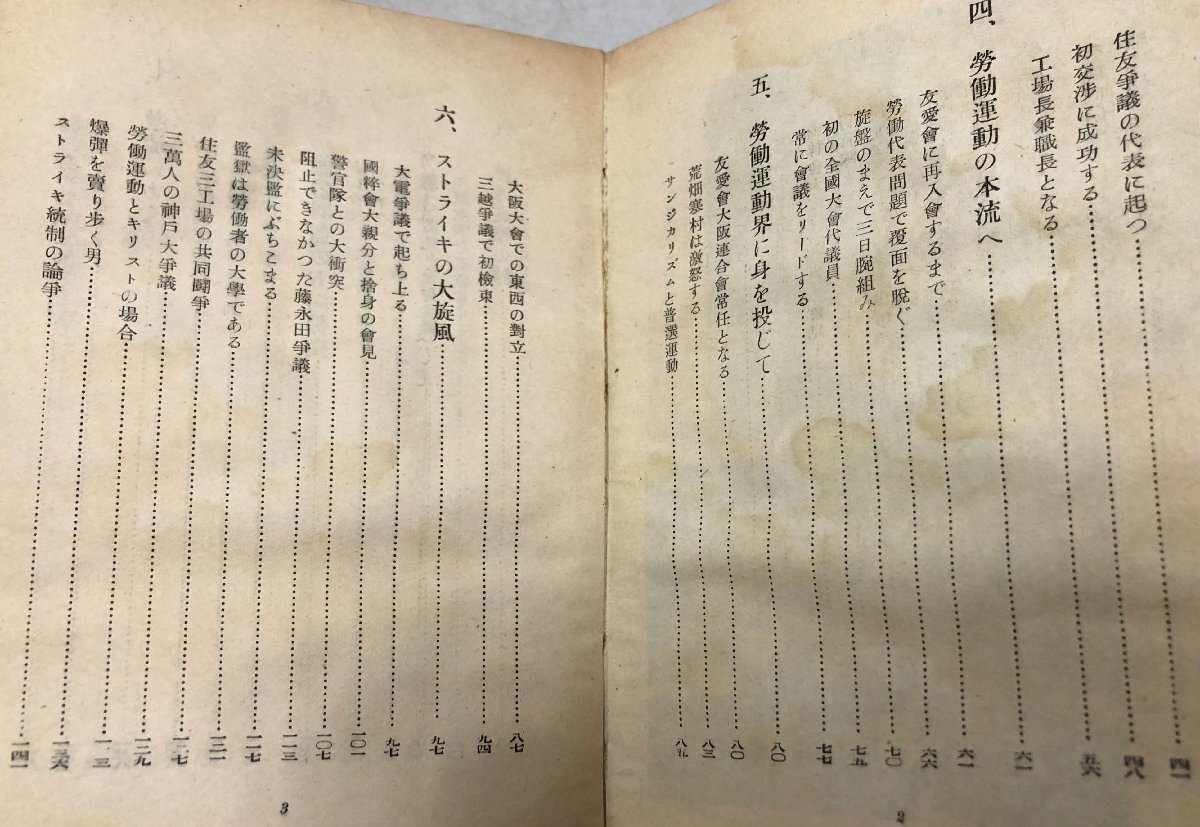 住友爭議の代表に起つ……四一
初交渉に成功する……四八
工場長兼職長となる……五六
四、勞働運動の本流へ……六一
友愛會に再入會するまで……六一
勞働代表問題で覆面を脱ぐ……六六
旋盤のまえで三日腕組み……七〇
初の全國大會代議員……七五
常に會議をリードする……七七
五、勞働運動界に身を投じて……八〇
友愛會大阪連合會常任となる……八〇
荒畑寒村は激怒する……八三
サンジカリズムと普選運動……八五
2
大阪大會での東西の對立……八七
三越爭議で初檢束……九四
六、ストライキの大旋風……九七
大電爭議で起ち上る……九七
國粹會大親分と捨身の會見……一〇一
警官隊との大衝突……一〇七
阻止できなかつた藤永田爭議……一一三
未決監にぶちこまる……一一七
監獄は勞働者の大學である……一二一
住友三工場の共同鬪爭……一二七
三萬人の神戶大爭議……一二九
勞働運動とキリストの場合……
爆彈を賣り步く男……一三六
ストライキ統制の論爭……一四一
3